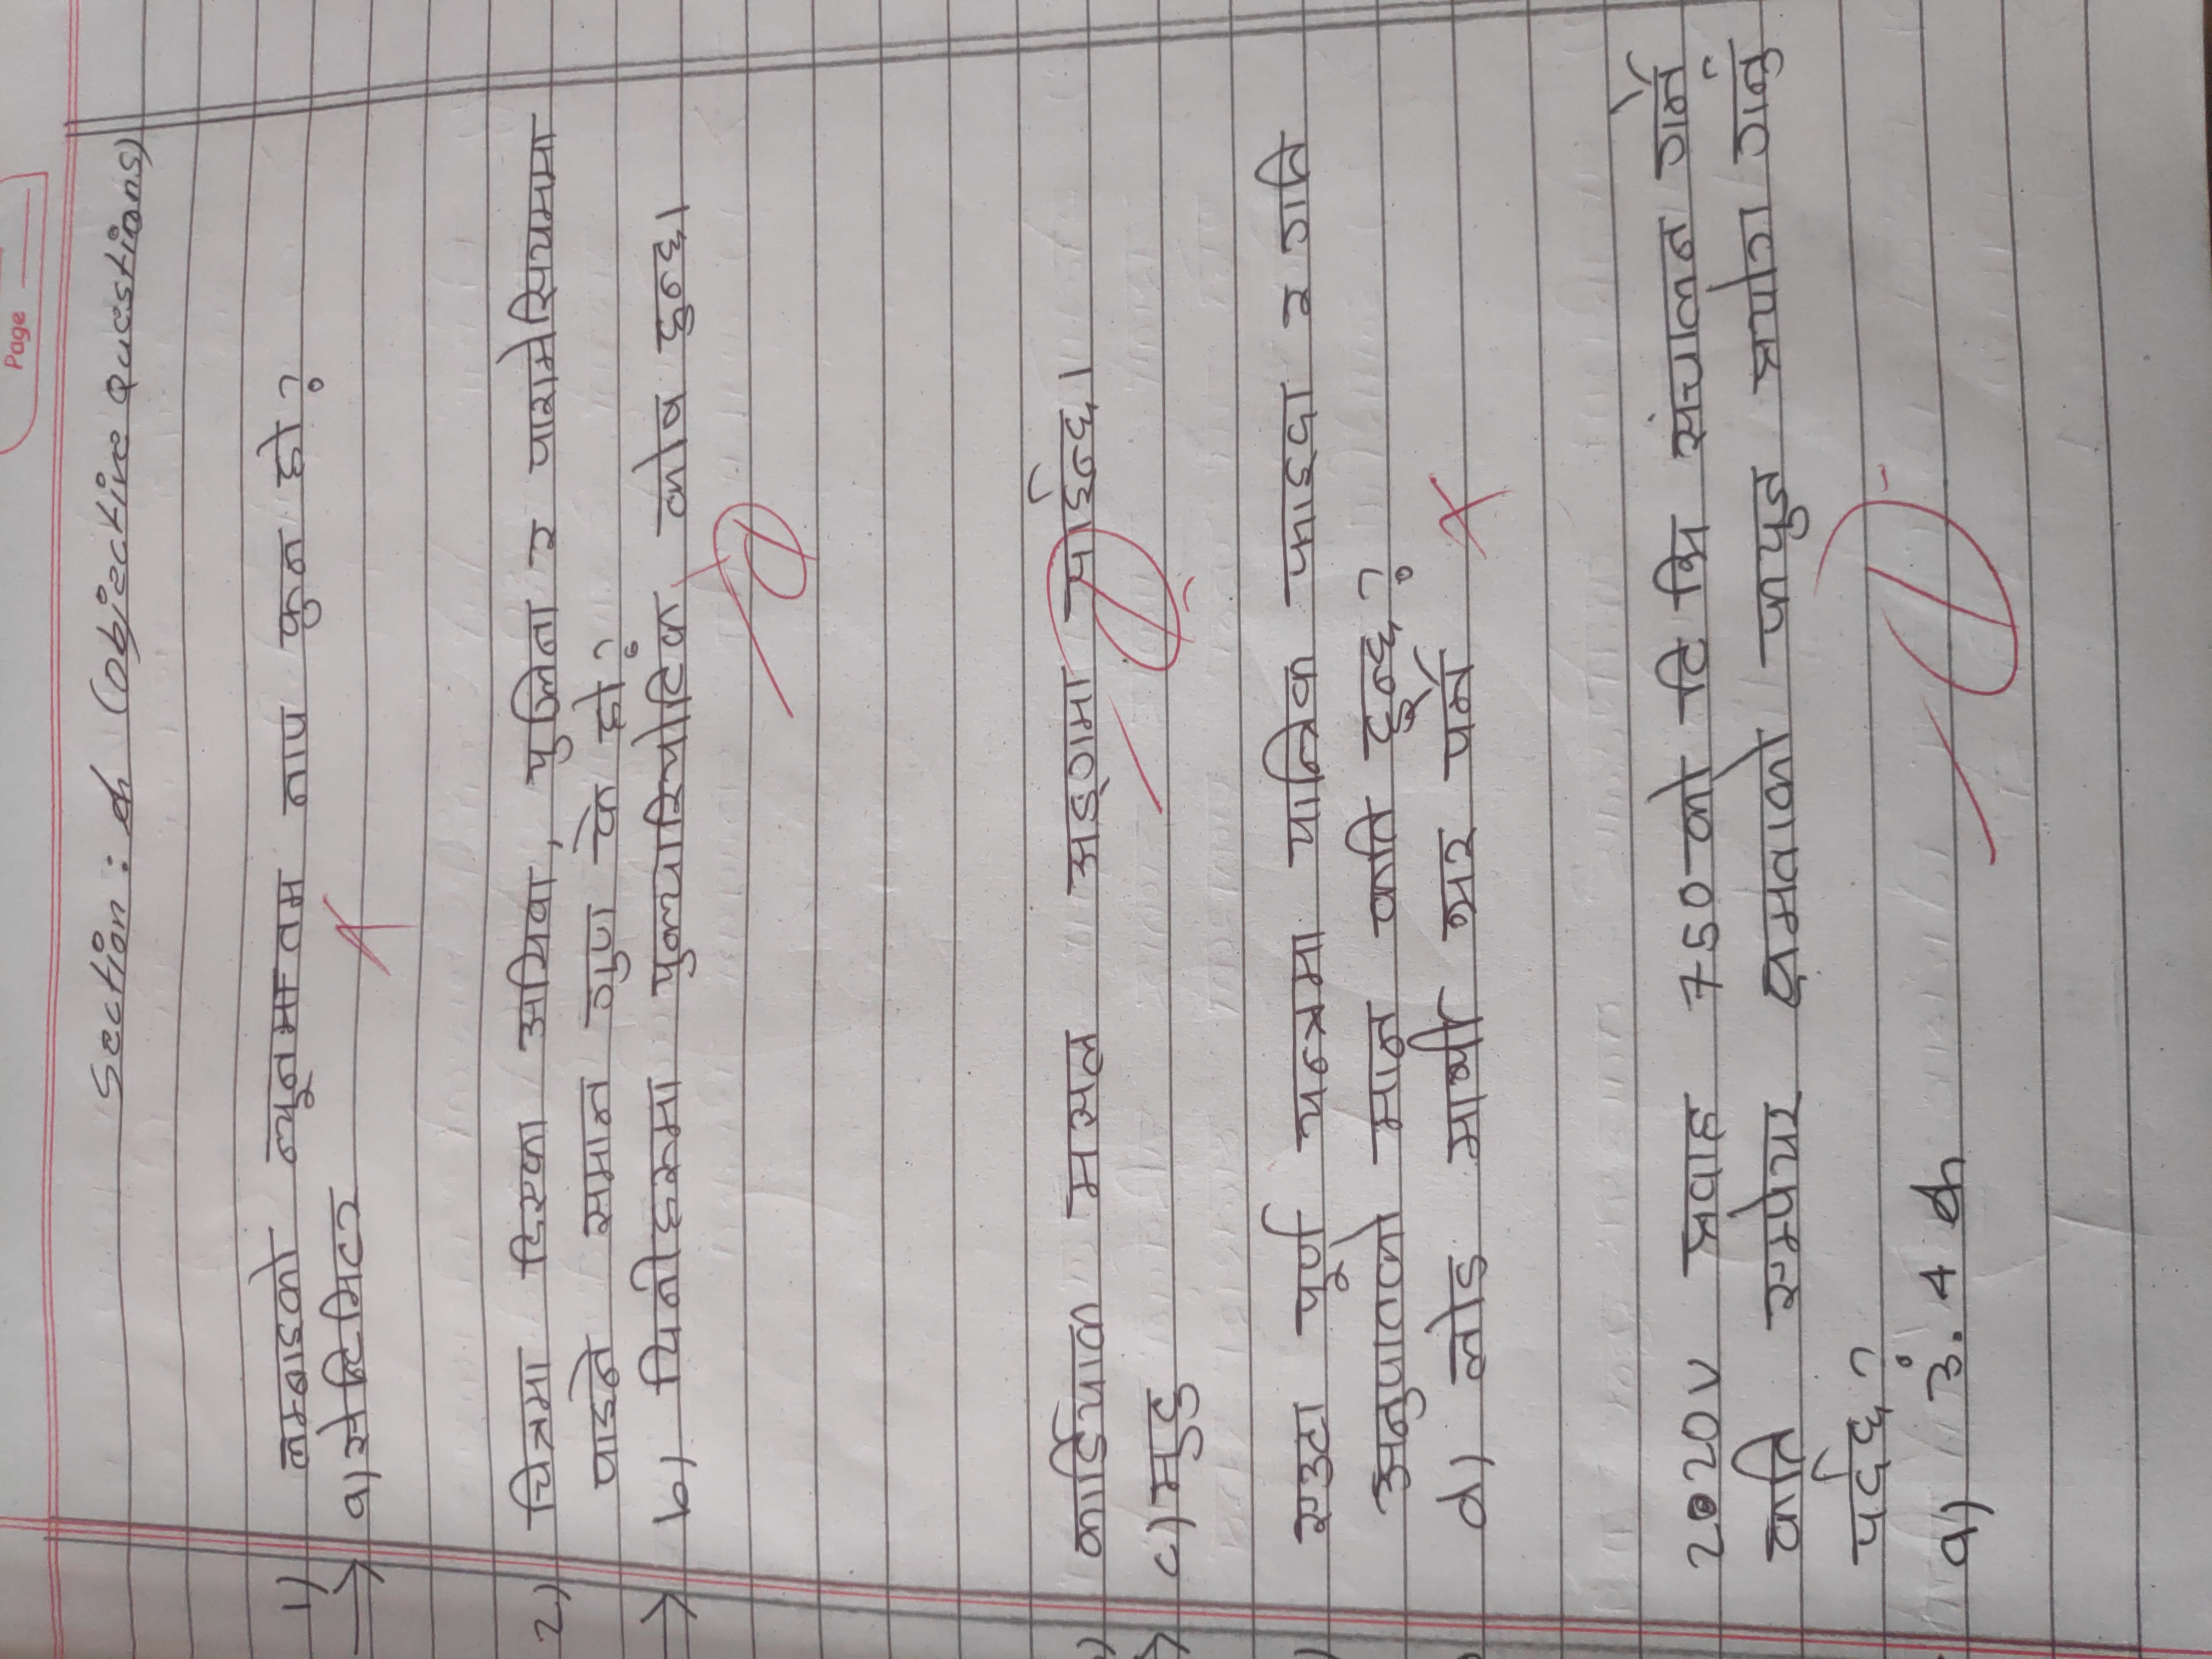 Page
Section : क (Objective Questions)
1) लम्बाइको न्यूनतम नाप कुन हो?
→ a) सेन्टिमिटर
2) चित्रमा दिएका अमिवा, युग्लिना र पारामेसियममा
पाइने समान गुण के हो?
→ b) यिनीहरूमा युक्यारियोटिक कोष हुन्छ।
) कार्डियाक मसल अङ्गमा पाईन्छ।
→ c) मुटु
) एउटा पूर्ण यन्त्रमा यान्त्रिक फाइदा र गति
अनुपातको मान कति हुन्छ?
d) लोड माथी भर पर्ने
220V प्रवाह 750को टि भि संचालन गर्ने
कति एम्पेयर क्षमताको फ्युज प्रयोग गर्नु
पर्दछ?
a) 3.4 क